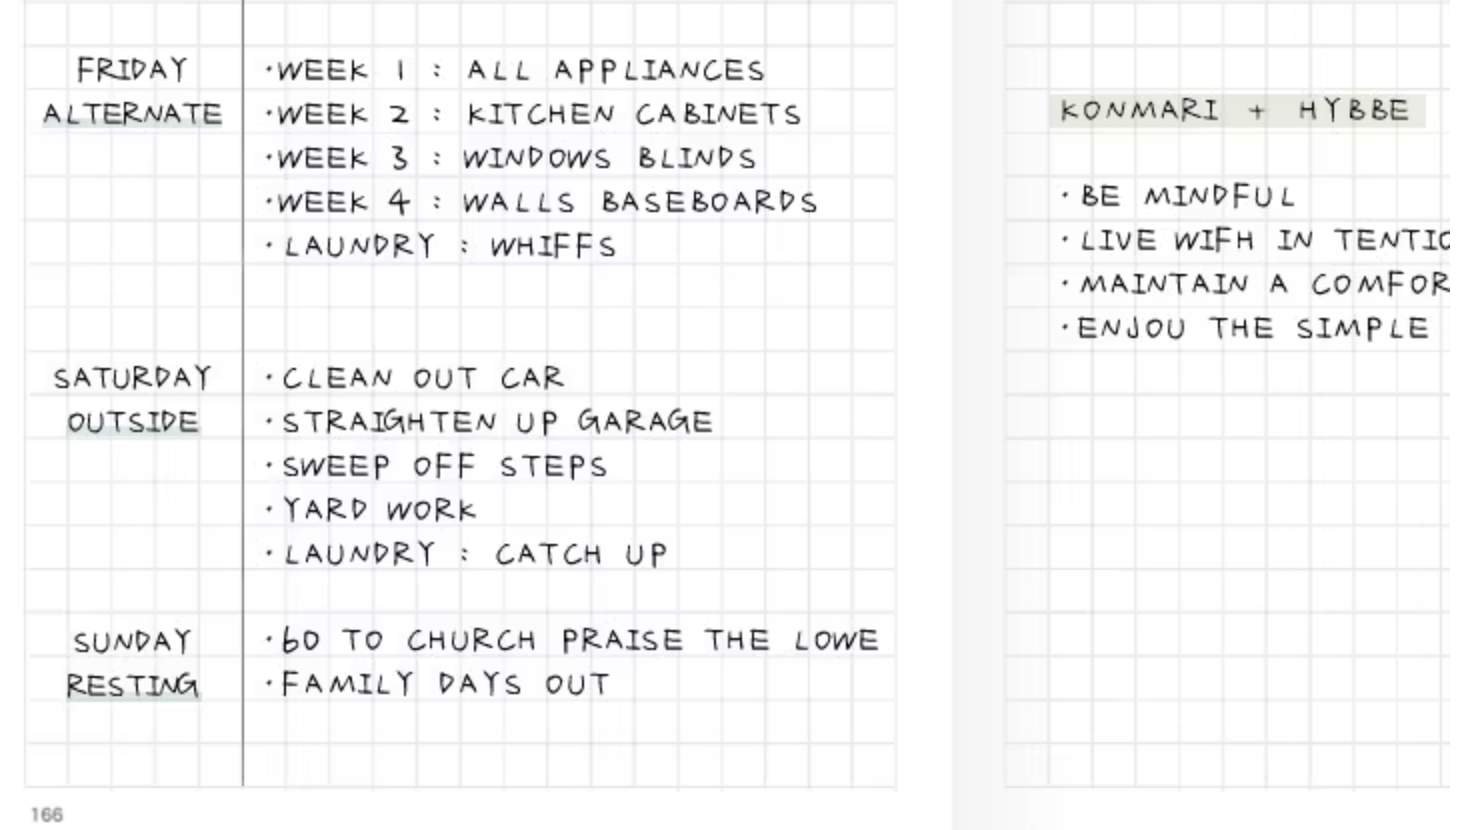 FRIDAY
ALTERNATE
·WEEK 1 : ALL APPLIANCES
·WEEK 2 : KITCHEN CABINETS
·WEEK 3 : WINDOWS BLINDS
·WEEK 4 : WALLS BASEBOARDS
·LAUNDRY : WHIFFS
SATURDAY
OUTSIDE
·CLEAN OUT CAR
·STRAIGHTEN UP GARAGE
·SWEEP OFF STEPS
·YARD WORK
·LAUNDRY : CATCH UP
SUNDAY
RESTING
·60 TO CHURCH PRAISE THE LOWE
·FAMILY DAYS OUT
166
KONMARI + HYBBE
·BE MINDFUL
·LIVE WIFH IN TENTIO
·MAINTAIN A COMFOR
·ENJOU THE SIMPLE